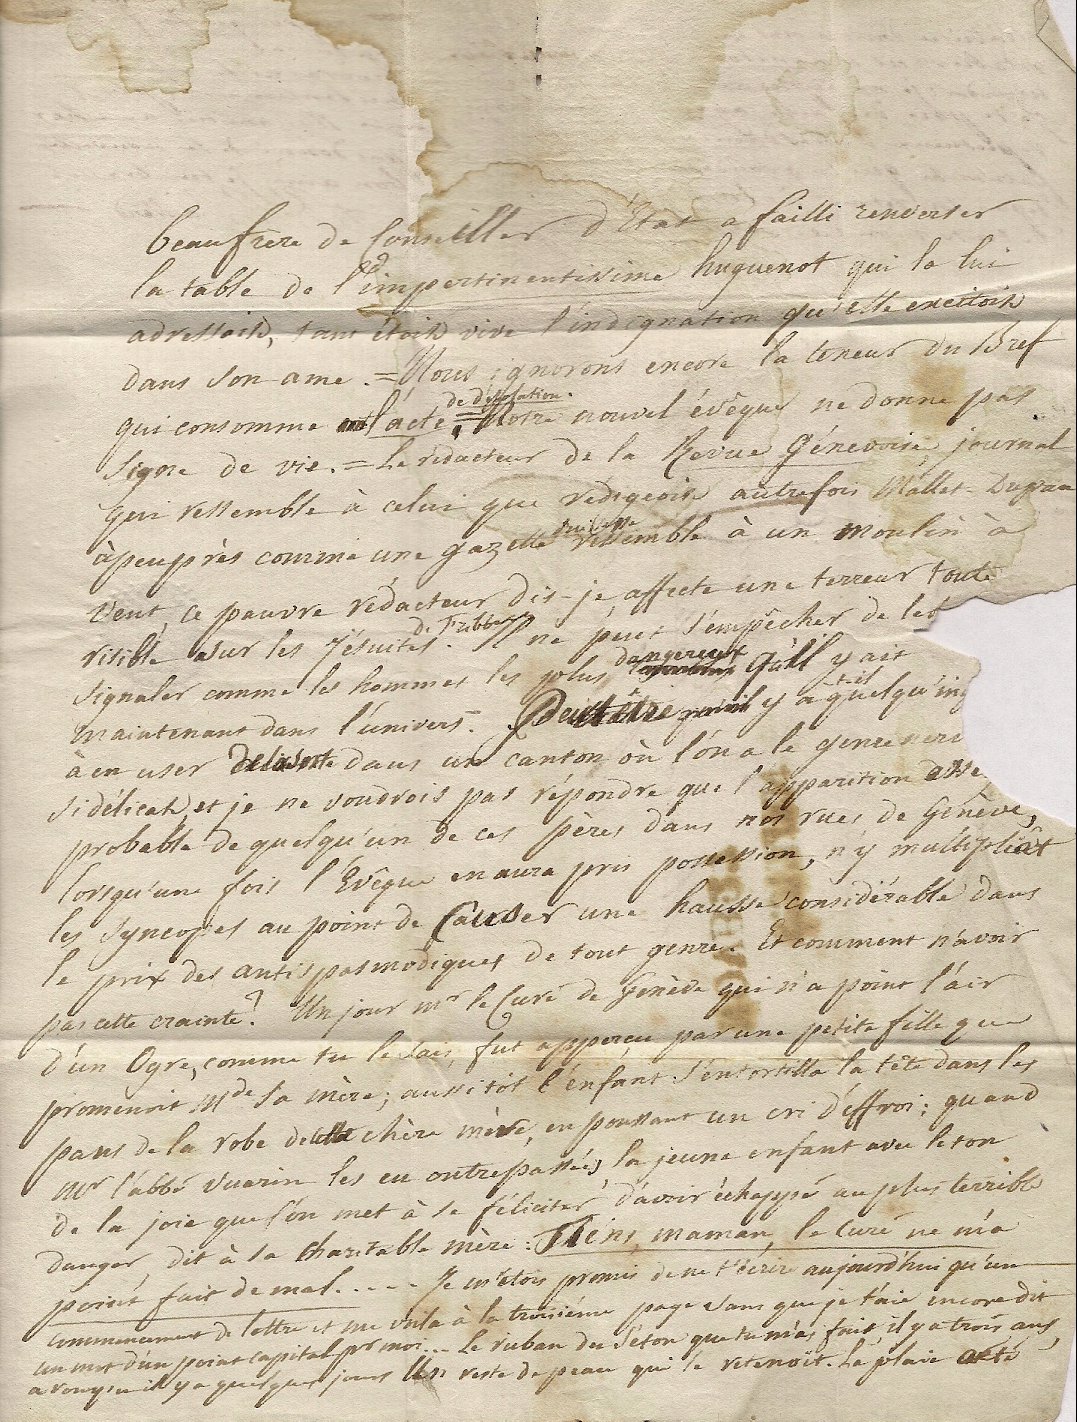 beaufrere de Conseiller d'Etat a failli renverser
la table de l'impertinentissime huguenot qui la lui
adressoit, tant étoit vive l'indignation qu'elle excitoit
dans son ame. = Nous ignorons encore la teneur du Bref
qui consomme l'acte de désolation. = Notre nouvel évêque ne donne pas
signe de vie. = Le rédacteur de la Revue Génevoise, journal
qui ressemble à celui que rédigeoit autrefois Mallet-Dupan
àpeuprès comme une gazette ressemble à un moulin à
vent, ce pauvre rédacteur dis-je, affecte une terreur toute
risible sur les Jésuites de Fribourg. Il ne peut s'empêcher de les
signaler comme les hommes les plus dangereux qu'il y ait
maintenant dans l'univers. Peutêtre y a-t-il quelqu'
à en user de la sorte dans un canton où l'on a le genre nerv
si délicat, et je ne voudrois pas répondre que l'apparition assez
probable de quelqu'un de ces pères dans nos rues de Genève,
lorsqu'une fois l'Evêque en aura pris possession, n'y multipliât
les syncopes au point de causer une hausse considérable dans
le prix des antispasmodiques de tout genre. Et comment n'avoir
pas cette crainte? Un jour Mr le Curé de Genève qui n'a point l'air
d'un Ogre, comme tu le sais, fut apperçu par une petite fille que
promenoit Mde sa mère; aussitôt l'enfant s'entortilla la tête dans les
pans de la robe de cette chère mère, en poussant un cri d'effroi; quand
Mr l'abbé Vuarin les eu outrepassées, la jeune enfant avec le ton
de la joie que l'on met à se féliciter d'avoir échappé au plus terrible
danger dit à sa charitable mère: Tiens, maman, le Curé ne m'a
point fait de mal.... Je m'étois promis de ne t'écrire aujourd'hui qu'un
commencement de lettre et me voila à la troisième page sans que je t'aie encore dit
un mot d'un point capital pr moi... Le ruban du séton que tu m'as fait il y a trois ans,
a rompu il y a quelques jours un reste de peau qui le retenoit. La plaie